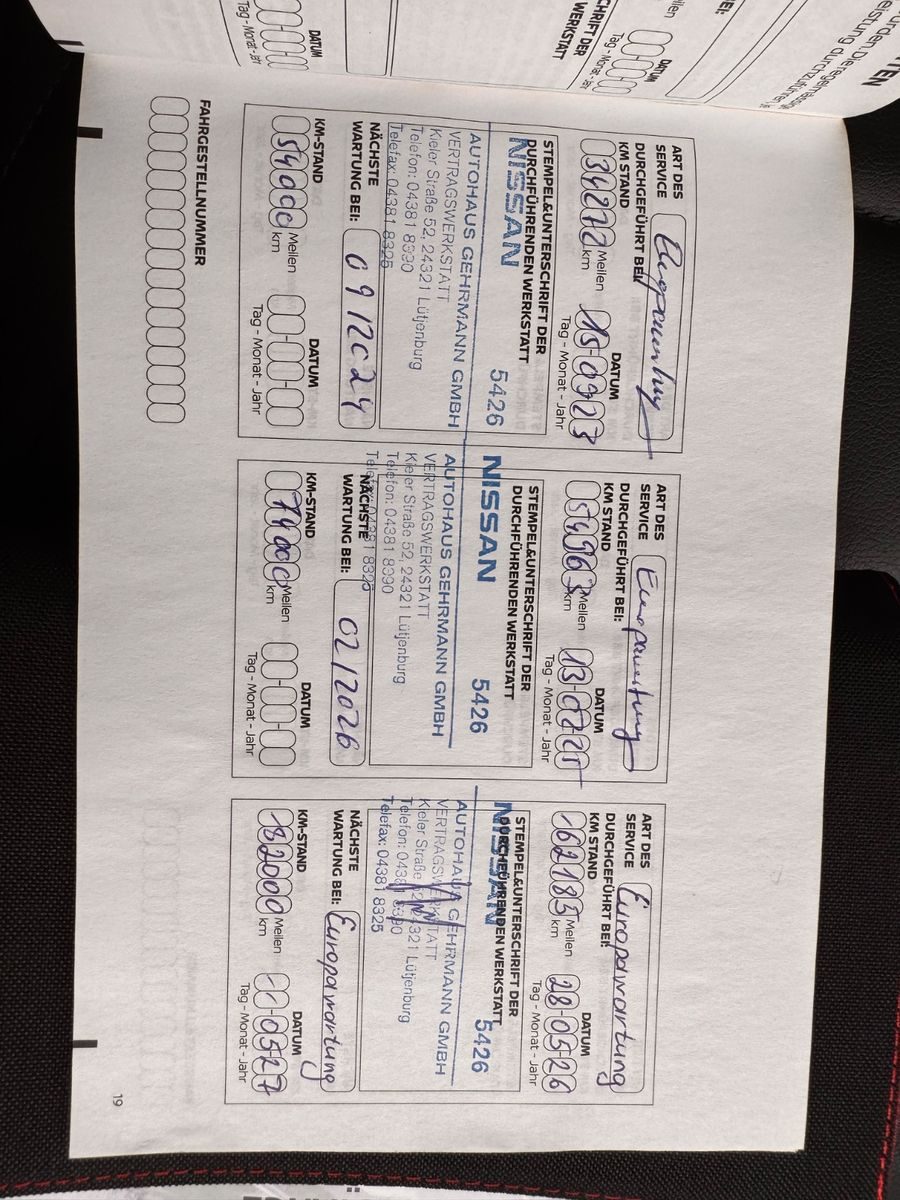 TEN
DATUM
Tag - Monat - Jahr
CHRIFT DER
WERKSTATT
DATUM
Tag - Monat - Jahr
ART DES
SERVICE
DURCHGEFÜHRT BEI:
KM STAND
34272 Meilen
km
DATUM
15-09-23
Tag - Monat - Jahr
STEMPEL&UNTERSCHRIFT DER
DURCHFÜHRENDEN WERKSTATT
NISSAN 5426
AUTOHAUS GEHRMANN GMBH
VERTRAGSWERKSTATT
Kieler Straße 52, 24321 Lütjenburg
Telefon: 04381 8390
Telefax: 04381 8325
NÄCHSTE
WARTUNG BEI:
KM-STAND
54000 Meilen
km
DATUM
Tag - Monat - Jahr
ART DES
SERVICE Europawartung
DURCHGEFÜHRT BEI:
KM STAND
54963 Meilen
km
DATUM
13-02-25
Tag - Monat - Jahr
STEMPEL&UNTERSCHRIFT DER
DURCHFÜHRENDEN WERKSTATT
NISSAN 5426
AUTOHAUS GEHRMANN GMBH
VERTRAGSWERKSTATT
Kieler Straße 52, 24321 Lütjenburg
Telefon: 04381 8390
Telefax: 04381 8325
NÄCHSTE
WARTUNG BEI: 02/2026
KM-STAND
74000 Meilen
km
DATUM
Tag - Monat - Jahr
ART DES
SERVICE Europawartung
DURCHGEFÜHRT BEI:
KM STAND
62185 Meilen
km
DATUM
28-05-26
Tag - Monat - Jahr
STEMPEL&UNTERSCHRIFT DER
DURCHFÜHRENDEN WERKSTATT
NISSAN 5426
AUTOHAUS GEHRMANN GMBH
VERTRAGSWERKSTATT
Kieler Straße 52, 24321 Lütjenburg
Telefon: 04381 8390
Telefax: 04381 8325
NÄCHSTE
WARTUNG BEI: Europawartung
KM-STAND
82000 Meilen
km
DATUM
-- - 05-27
Tag - Monat - Jahr
FAHRGESTELLNUMMER
19